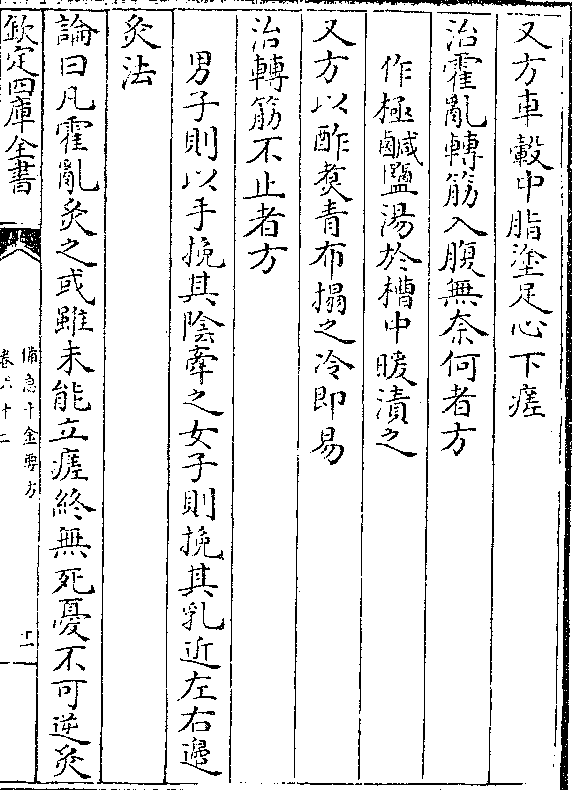 又方車轂中脂塗足心下瘥
治霍亂轉筋入腹無奈何者方
作極鹹鹽湯於槽中暖漬之
又方以酢煑青布搨之冷即易
治轉筋不止者方
男子則以手挽其陰牽之女子則挽其乳近左右邊
灸法
論曰凡霍亂灸之或雖未能立瘥終無死憂不可逆灸
欽定四庫全書
備急千金要方
卷六十二
十一